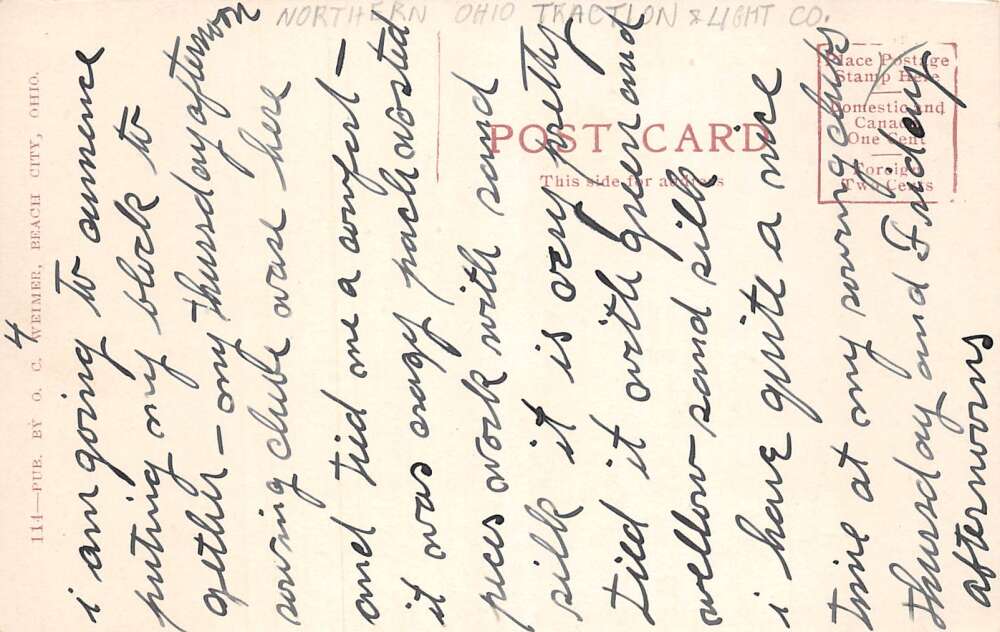 NORTHERN OHIO TRACTION & LIGHT CO.
POST CARD
This side for address
Place Postage
Stamp Here
Domestic and
Canada
One Cent
Foreign
Two Cents
114—PUB. BY O. C. WEIMER, BEACH CITY, OHIO.
4
i am going to comence
puting my block to
gether - my Thursday afternoon
sowing clube wase here
and tied me a comfort -
it was crazy pach wosted
pices work with sand
silk it is very pretty
tied it with green and
yellow sand silk
i have quite a nice
time at my sowing clubs
Thursday and Friday
afternoons